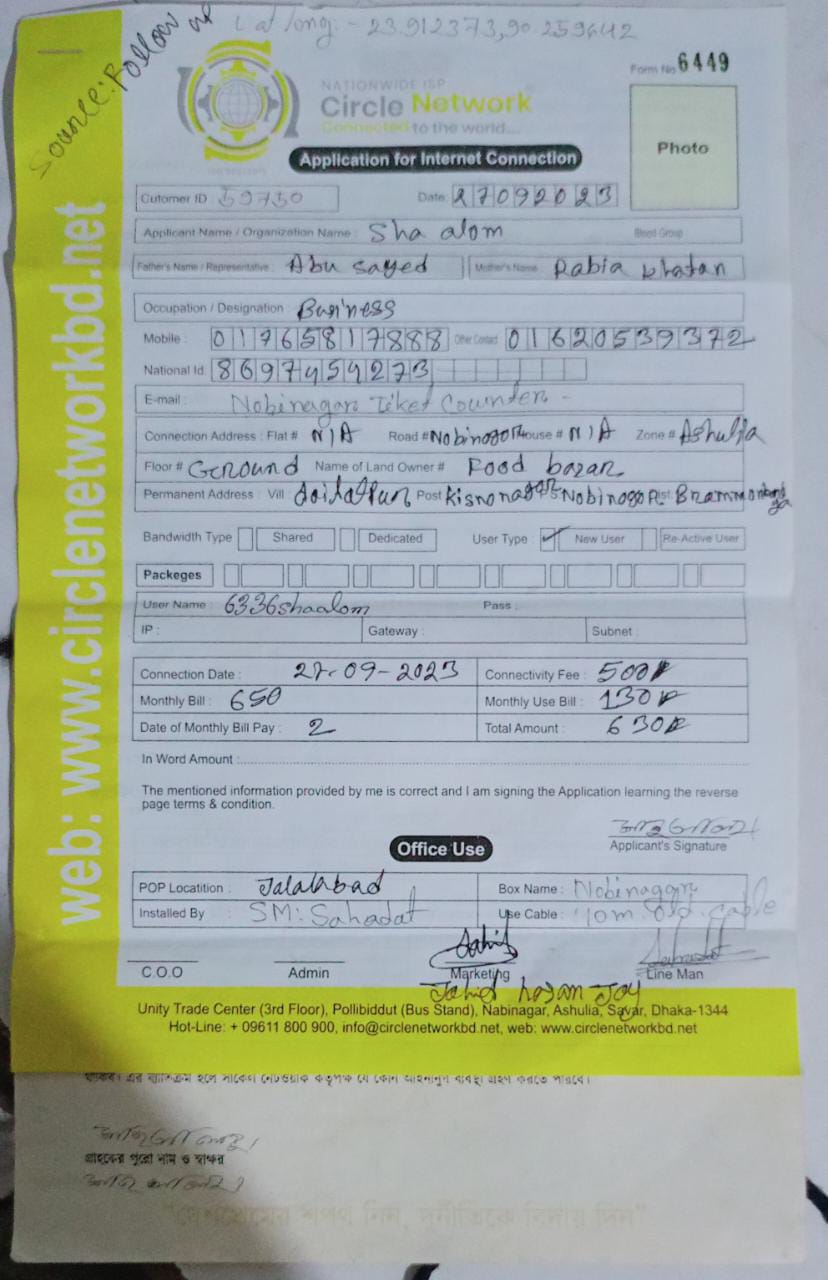 Lat long:- 23.912373,90.259642
Source: Follow up
Form No 6449
NATIONWIDE ISP
Circle Network
Connected to the world....
Photo
Application for Internet Connection
Cutomer ID : 59750 Date: 27092023
Applicant Name / Organization Name : Sha alom Blood Group :
Father's Name / Representative : Abu sayed Mother's Name : Rabia khatan
Occupation / Designation : Business
Mobile : 01765817888 Other Contact 01620539372
National Id: 8697454273
E-mail : Nobinagar Tiket Counter -
Connection Address : Flat # N/A Road # Nobinogor House # N/A Zone # Ashulia
Floor # Ground Name of Land Owner # Food bazar
Permanent Address : Vill : Post : Kisnonagor P.S: Nobinogor Dist:
Bandwidth Type Shared Dedicated User Type : ✓ New User Re-Active User
Packeges
User Name : 6336shaalom Pass :
IP : Gateway : Subnet :
Connection Date : 27-09-2023 Connectivity Fee : 500
Monthly Bill : 650 Monthly Use Bill : 130
Date of Monthly Bill Pay : 2 Total Amount : 630
In Word Amount :
The mentioned information provided by me is correct and I am signing the Application learning the reverse
page terms & condition.
Applicant's Signature
Office Use
POP Locatition : Jalalabad Box Name : Nobinagar
Installed By : SM: Sahadat Use Cable : 10m old. cable
C.O.O Admin Marketing Line Man
Jahid hasan Joy
Unity Trade Center (3rd Floor), Pollibiddut (Bus Stand), Nabinagar, Ashulia, Savar, Dhaka-1344
Hot-Line: + 09611 800 900, info@circlenetworkbd.net, web: www.circlenetworkbd.net
web: www.circlenetworkbd.net
থাকিব। এর ব্যতিক্রম হলে সার্কেল নেটওয়ার্ক কর্তৃপক্ষ যে কোন আইনানুগ ব্যবস্থা গ্রহণ করতে পারবে।
গ্রাহকের পুরো নাম ও স্বাক্ষর
"দেশপ্রেমের শপথ নিন, দুর্নীতিকে বিদায় দিন"